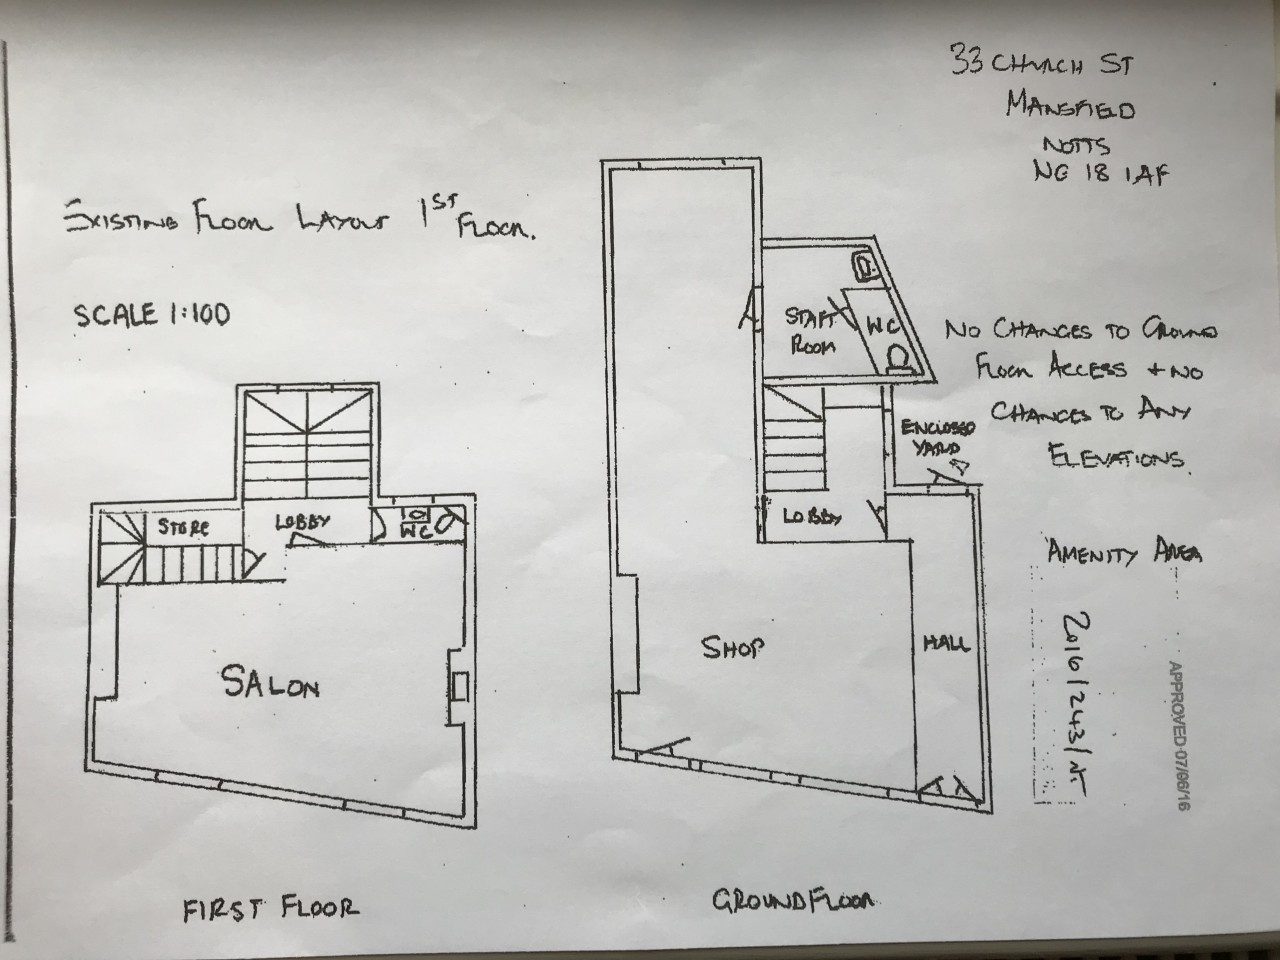 33 CHURCH ST
MANSFIELD
NOTTS
NG 18 1AF
EXISTING FLOOR LAYOUT 1ST FLOOR.
SCALE 1:100
STORE
LOBBY
WC
SALON
FIRST FLOOR
STAFF
ROOM
WC
ENCLOSED
YARD
LOBBY
SHOP
HALL
GROUND FLOOR
NO CHANGES TO GROUND
FLOOR ACCESS + NO
CHANGES TO ANY
ELEVATIONS.
AMENITY AREA
2016/243/NT
APPROVED 07/06/16